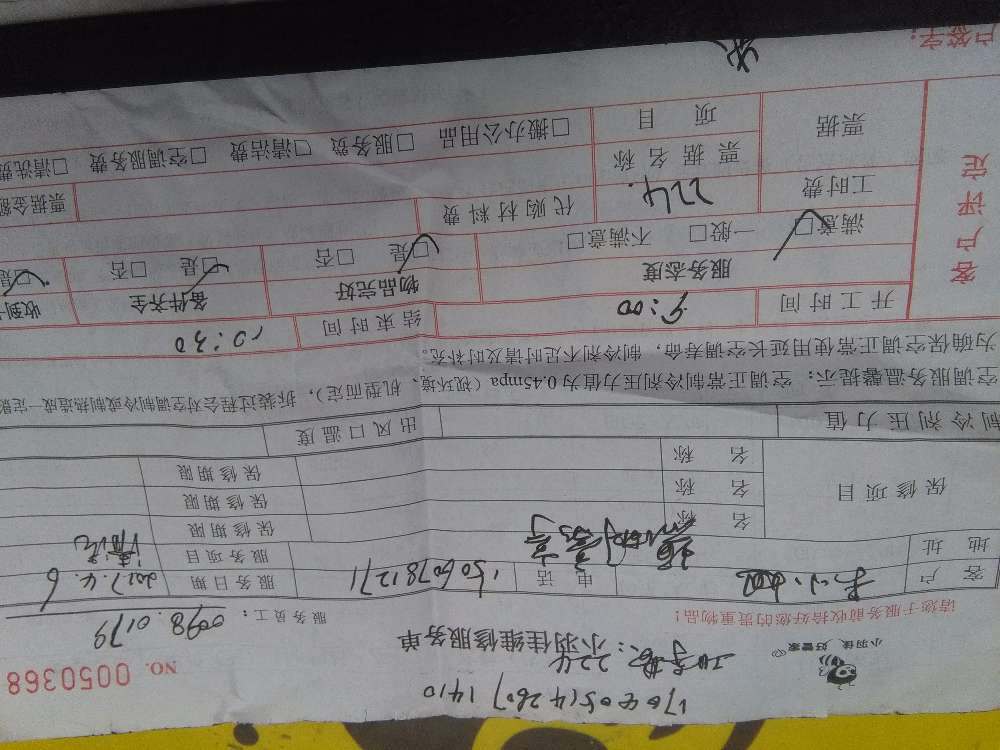 1704051426071410
小羽佳 好管家
224
小羽佳维修服务单
NO. 0050368
请您于服务前收拾好您的贵重物品!
服务员工: 0098.0179
客户
电话 15060781271
服务日期 2017.4.6
地址
服务项目 清洗
保修项目
名称
保修期限
名称
保修期限
名称
保修期限
制冷剂压力值
出风口温度
空调服务温馨提示: 空调正常制冷剂压力值为0.45mpa (视环境、机型而定), 拆装过程会对空调制冷或制热造成一定影
为确保空调正常使用延长空调寿命, 制冷剂不足时请及时补充。
客户评定
开工时间 9:00
结束时间 10:30
服务态度
物品完好
备件齐全
收到
满意□ 一般□ 不满意□
□是 □否
□是 □否
□是
工时费 224.
代购材料费
票据
票据名称
票据金额
项目
□搬办公用品 □服务费 □清洁费 □空调服务费 □清洗费
户签字: